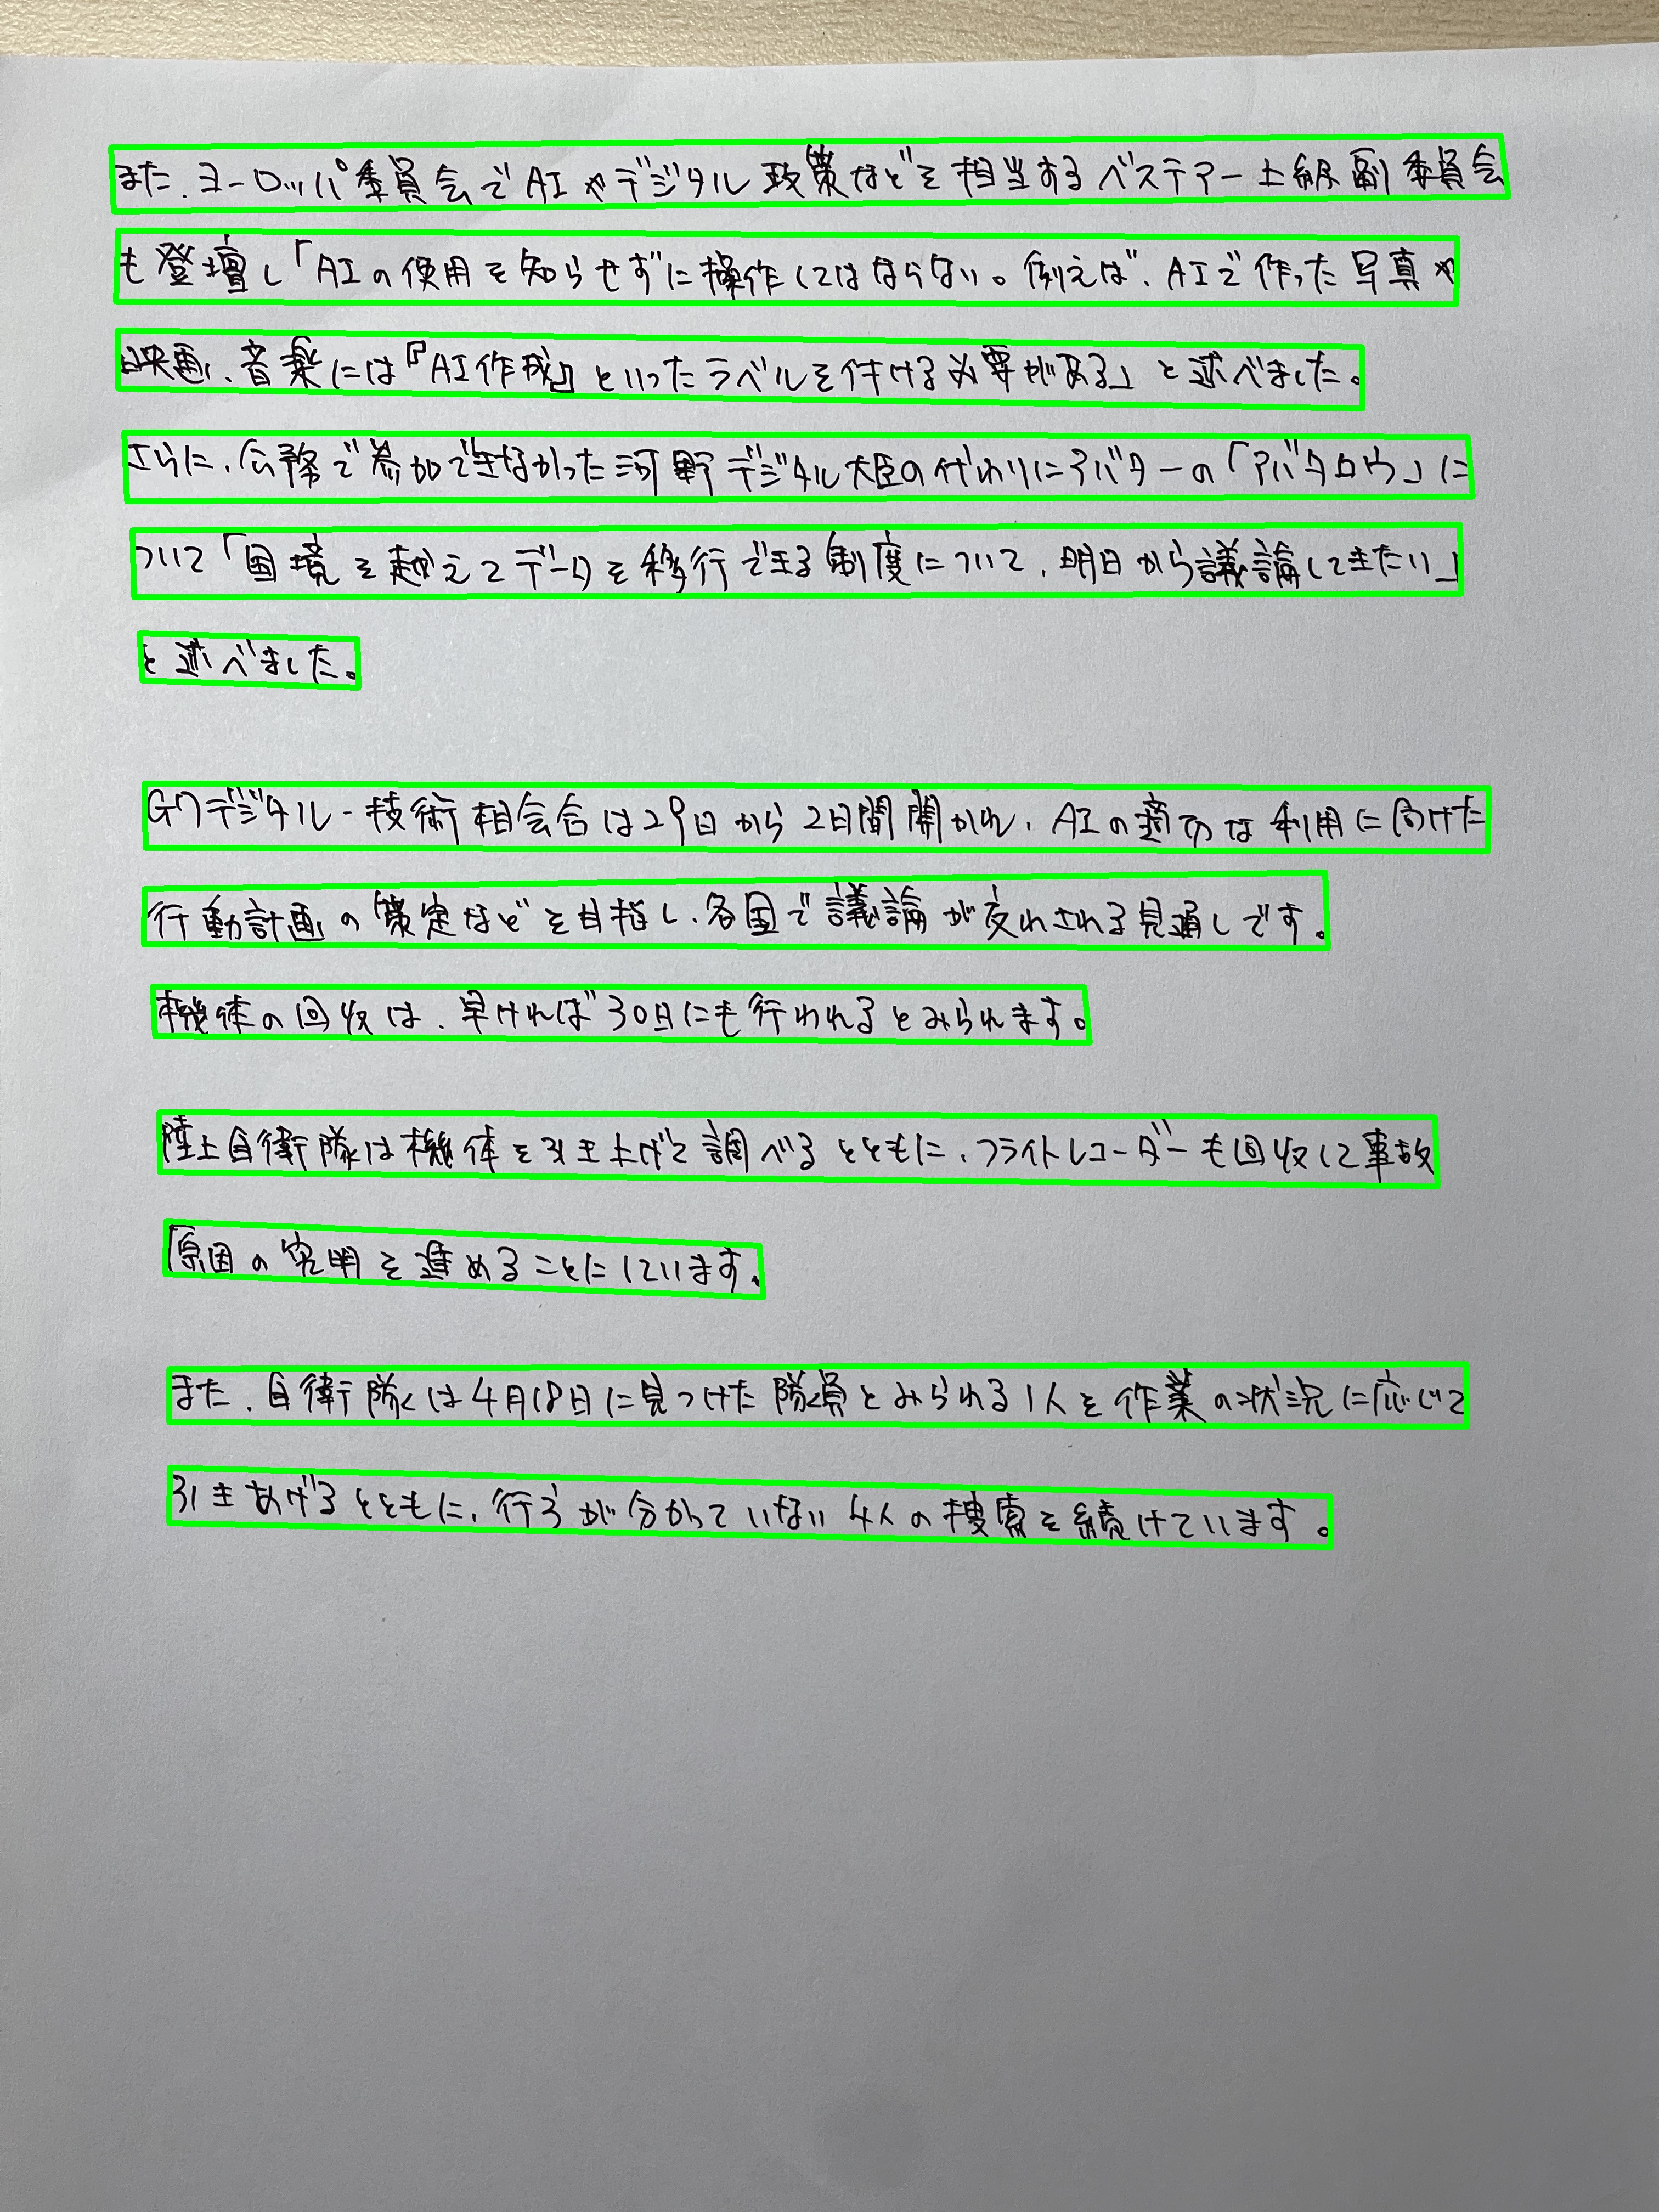 また、ヨーロッパ委員会でAIやデジタル政策などを相当するベステアー上級副委員会
も登壇し「AIの使用を知らせずに操作してはならない。例えば、AIで作った写真や
映画、音楽には『AI作成』といったラベルを付ける必要がある」と述べました。
さらに、公務で参加できなかった河野デジタル大臣の代わりにアバターの「アバタロウ」に
ついて「国境を越えてデータを移行できる制度について、明日から議論してきたい」
と述べました。
G7デジタル・技術相会合は29日から2日間開かれ、AIの適切な利用に向けた
行動計画の策定などを目指し、各国で議論が交わされる見通しです。
機体の回収は、早ければ30日にも行われるとみられます。
陸上自衛隊は機体を引き上げて調べるとともに、フライトレコーダーも回収して事故
原因の究明を進めることにしています。
また、自衛隊は4月18日に見つけた隊員とみられる1人を作業の状況に応じて
引きあげるとともに、行方が分かっていない4人の捜索を続けています。